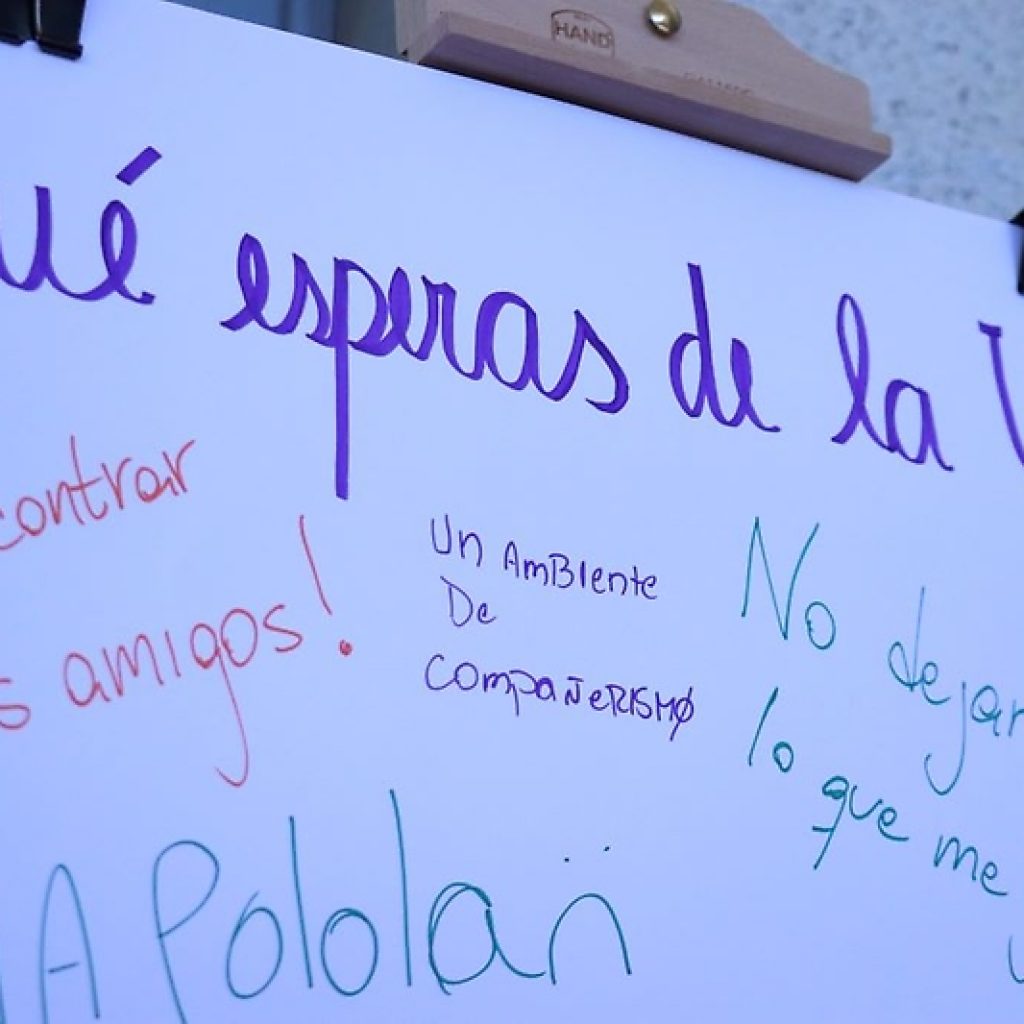 HAND
ué esperas de la V
contrar
s amigos!
Un AmBIente
De
compAÑeRISMO
No dejar
lo que me
A Pololañ